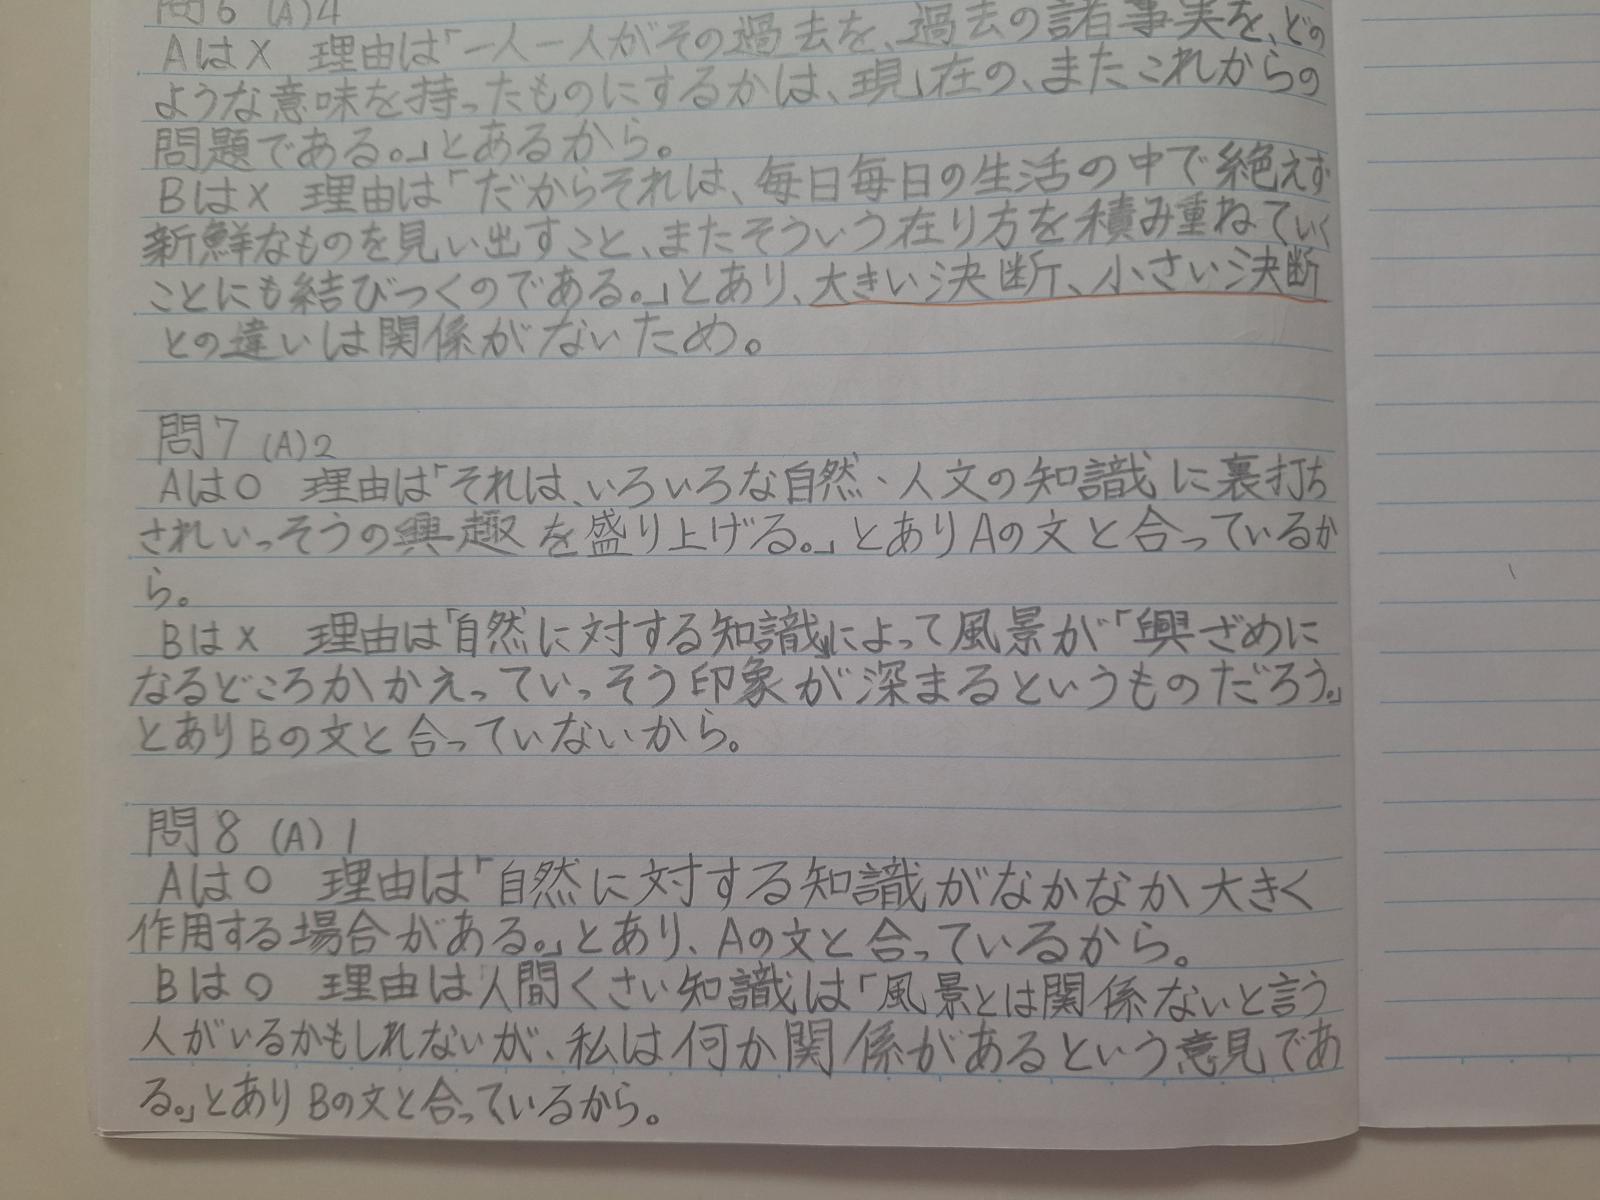 問6 (A)4
Aは× 理由は「一人一人がその過去を、過去の諸事実を、どの
ような意味を持ったものにするかは、現在の、またこれからの
問題である。」とあるから。
Bは× 理由は「だからそれは、毎日毎日の生活の中で絶えず
新鮮なものを見い出すこと、またそういう在り方を積み重ねていく
ことにも結びつくのである。」とあり、大きい決断、小さい決断
との違いは関係がないため。
問7 (A)2
Aは○ 理由は「それは、いろいろな自然・人文の知識に裏打ち
されいっそうの興趣を盛り上げる。」とありAの文と合っているか
ら。
Bは× 理由は「自然に対する知識」によって風景が「興ざめに
なるどころかかえっていっそう印象が深まるというものだろう。」
とありBの文と合っていないから。
問8 (A)1
Aは○ 理由は「自然に対する知識がなかなか大きく
作用する場合がある。」とあり、Aの文と合っているから。
Bは○ 理由は人間くさい知識は「風景とは関係ないと言う
人がいるかもしれないが、私は何か関係があるという意見であ
る。」とありBの文と合っているから。